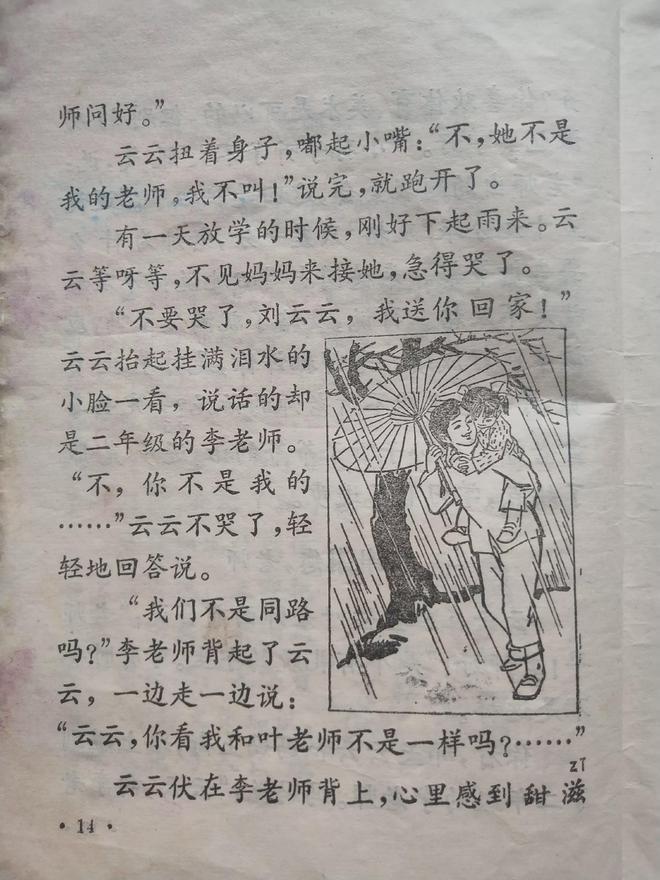 师问好。”
云云扭着身子，嘟起小嘴：“不，她不是
我的老师，我不叫！”说完，就跑开了。
有一天放学的时候，刚好下起雨来。云
云等呀等，不见妈妈来接她，急得哭了。
“不要哭了，刘云云，我送你回家！”
云云抬起挂满泪水的
小脸一看，说话的却
是二年级的李老师。
“不，你不是我的
……”云云不哭了，轻
轻地回答说。
“我们不是同路
吗？”李老师背起了云
云，一边走一边说：
“云云，你看我和叶老师不是一样吗？……”
zī
云云伏在李老师背上，心里感到甜滋
·14·